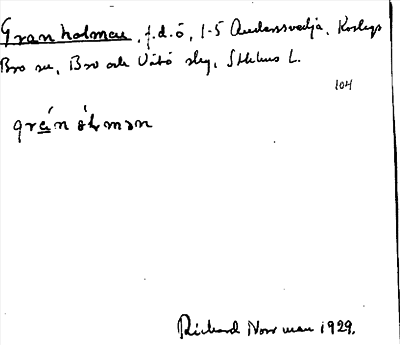 Granholmen, f.d. ö, 1-5 Audansvedja, Roslags
Bro sn, Bro och Vätö skg, Sthlms L.
104
grán ólmən
Richard Norrman 1929.